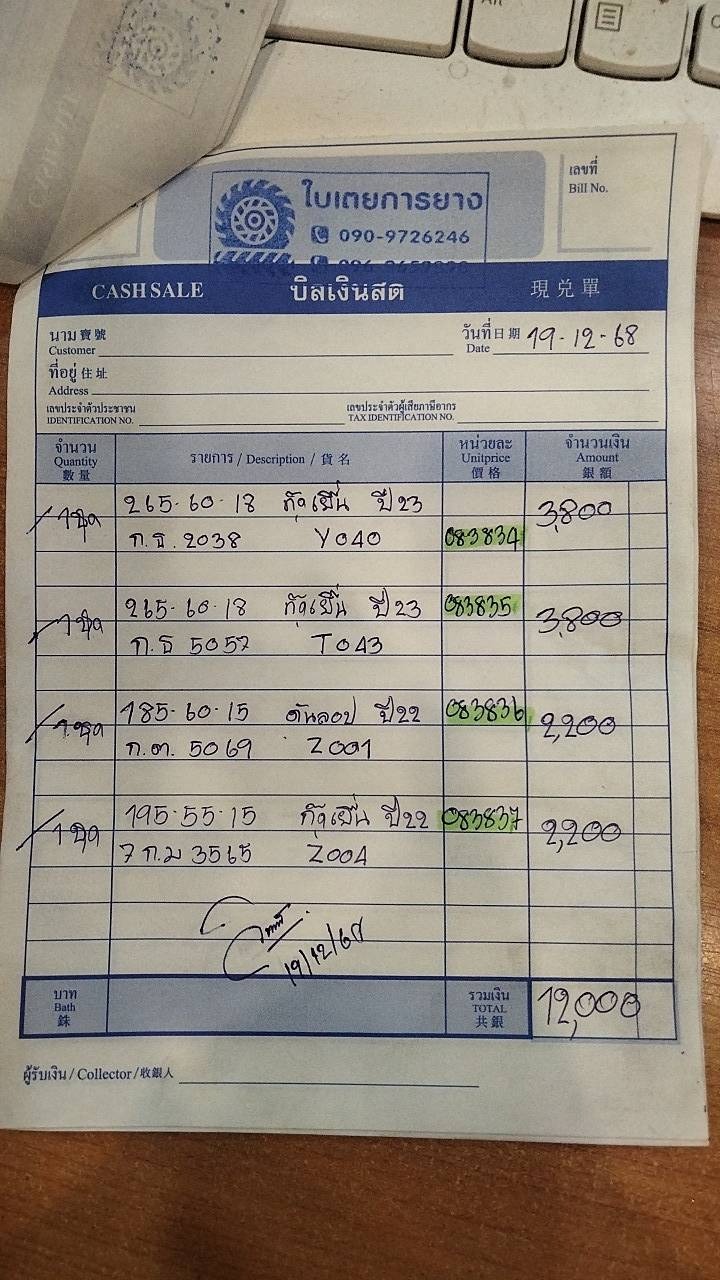 ใบเตยการยาง
090-9726246
เลขที่
Bill No.
CASH SALE บิลเงินสด 現兑單
นาม 寶號
Customer
วันที่ 日期 19-12-68
Date
ที่อยู่ 住址
Address
เลขประจำตัวประชาชน
IDENTIFICATION NO.
เลขประจำตัวผู้เสียภาษีอากร
TAX IDENTIFICATION NO.
จำนวน
Quantity
數量
รายการ / Description / 貨名
หน่วยละ
Unitprice
價格
จำนวนเงิน
Amount
銀額
1ชุด 265-60-18 ปี23 3,800
ก.ธ. 2038 Y040 083834
1ชุด 265-60-18 ปี23 083835 3,800
ก.ธ 5057 T043
1ชุด 185-60-15 ดันลอป ปี22 083836 2,200
ก.ต. 5069 Z001
1ชุด 195-55-15 ปี22 083837 2,200
7 ก.ม 3565 Z004
19/12/68
บาท
Bath
銖
รวมเงิน
TOTAL
共銀
12,000
ผู้รับเงิน / Collector / 收銀人